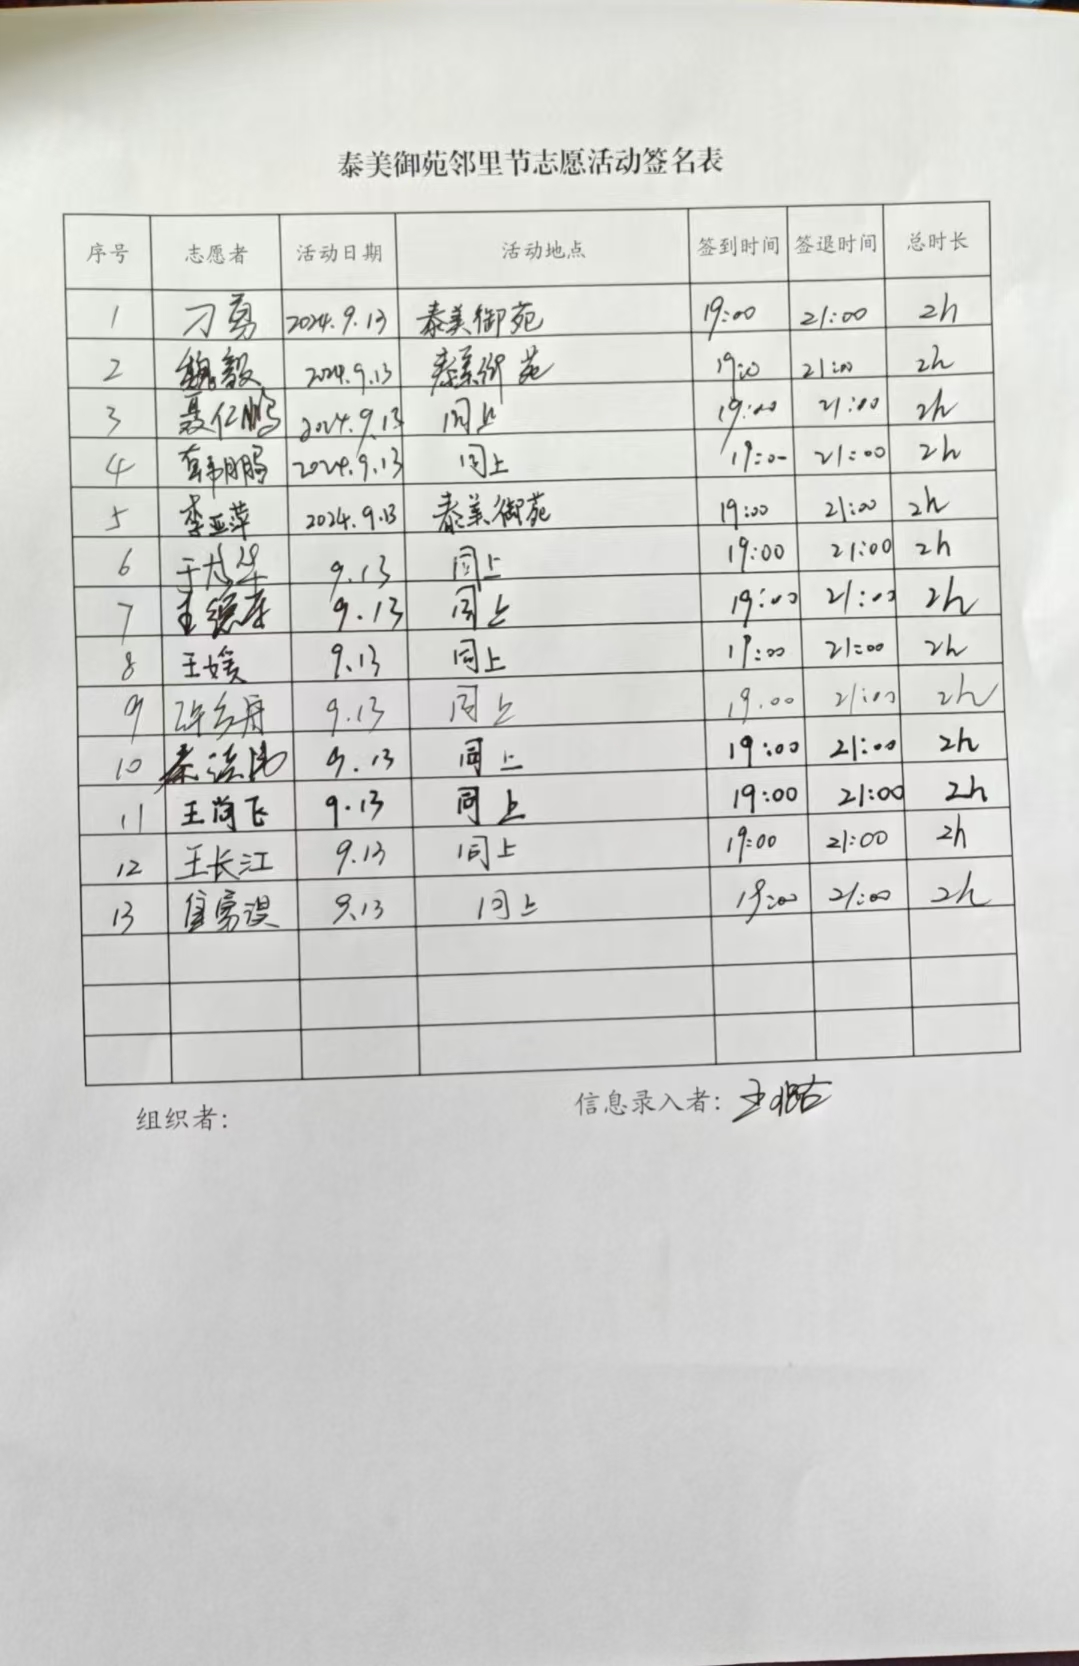 泰美御苑邻里节志愿活动签名表
序号 志愿者 活动日期 活动地点 签到时间 签退时间 总时长
1 刁勇 2024.9.13 泰美御苑 19:00 21:00 2h
2 魏毅 2024.9.13 泰美御苑 19:00 21:00 2h
3 聂仁鹏 2024.9.13 同上 19:00 21:00 2h
4 韩鹏 2024.9.13 同上 19:00 21:00 2h
5 李亚萍 2024.9.13 泰美御苑 19:00 21:00 2h
6 9.13 同上 19:00 21:00 2h
7 王德库 9.13 同上 19:00 21:00 2h
8 王媛 9.13 同上 19:00 21:00 2h
9 9.13 同上 19.00 21:00 2h
10 9.13 同上 19:00 21:00 2h
11 王尚飞 9.13 同上 19:00 21:00 2h
12 王长江 9.13 同上 19:00 21:00 2h
13 9.13 同上 19:00 21:00 2h
组织者: 信息录入者: